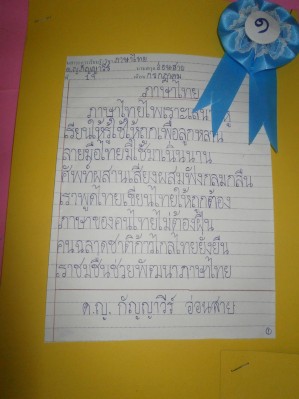 ๑
ภาษาไทย
ด.ญ.กัญญาวีร์ อ่อนสาย
กรกฎาคม
ภาษาไทย
ภาษาไทยไพเราะเสนาะหู
เรียนให้รู้ใช้ให้ถูกเพื่อลูกหลาน
ลายมือไทยมีใช้มาเนิ่นนาน
ศัพท์ผสานเสียงผสมฟังกลมกลืน
เราพูดไทยเขียนไทยให้ถูกต้อง
ภาษาของคนไทยไม่ต้องฝืน
คนฉลาดชาติก้าวไกลไทยยั่งยืน
เราชมชื่นช่วยพัฒนาภาษาไทย
ด.ญ. กัญญาวีร์ อ่อนสาย